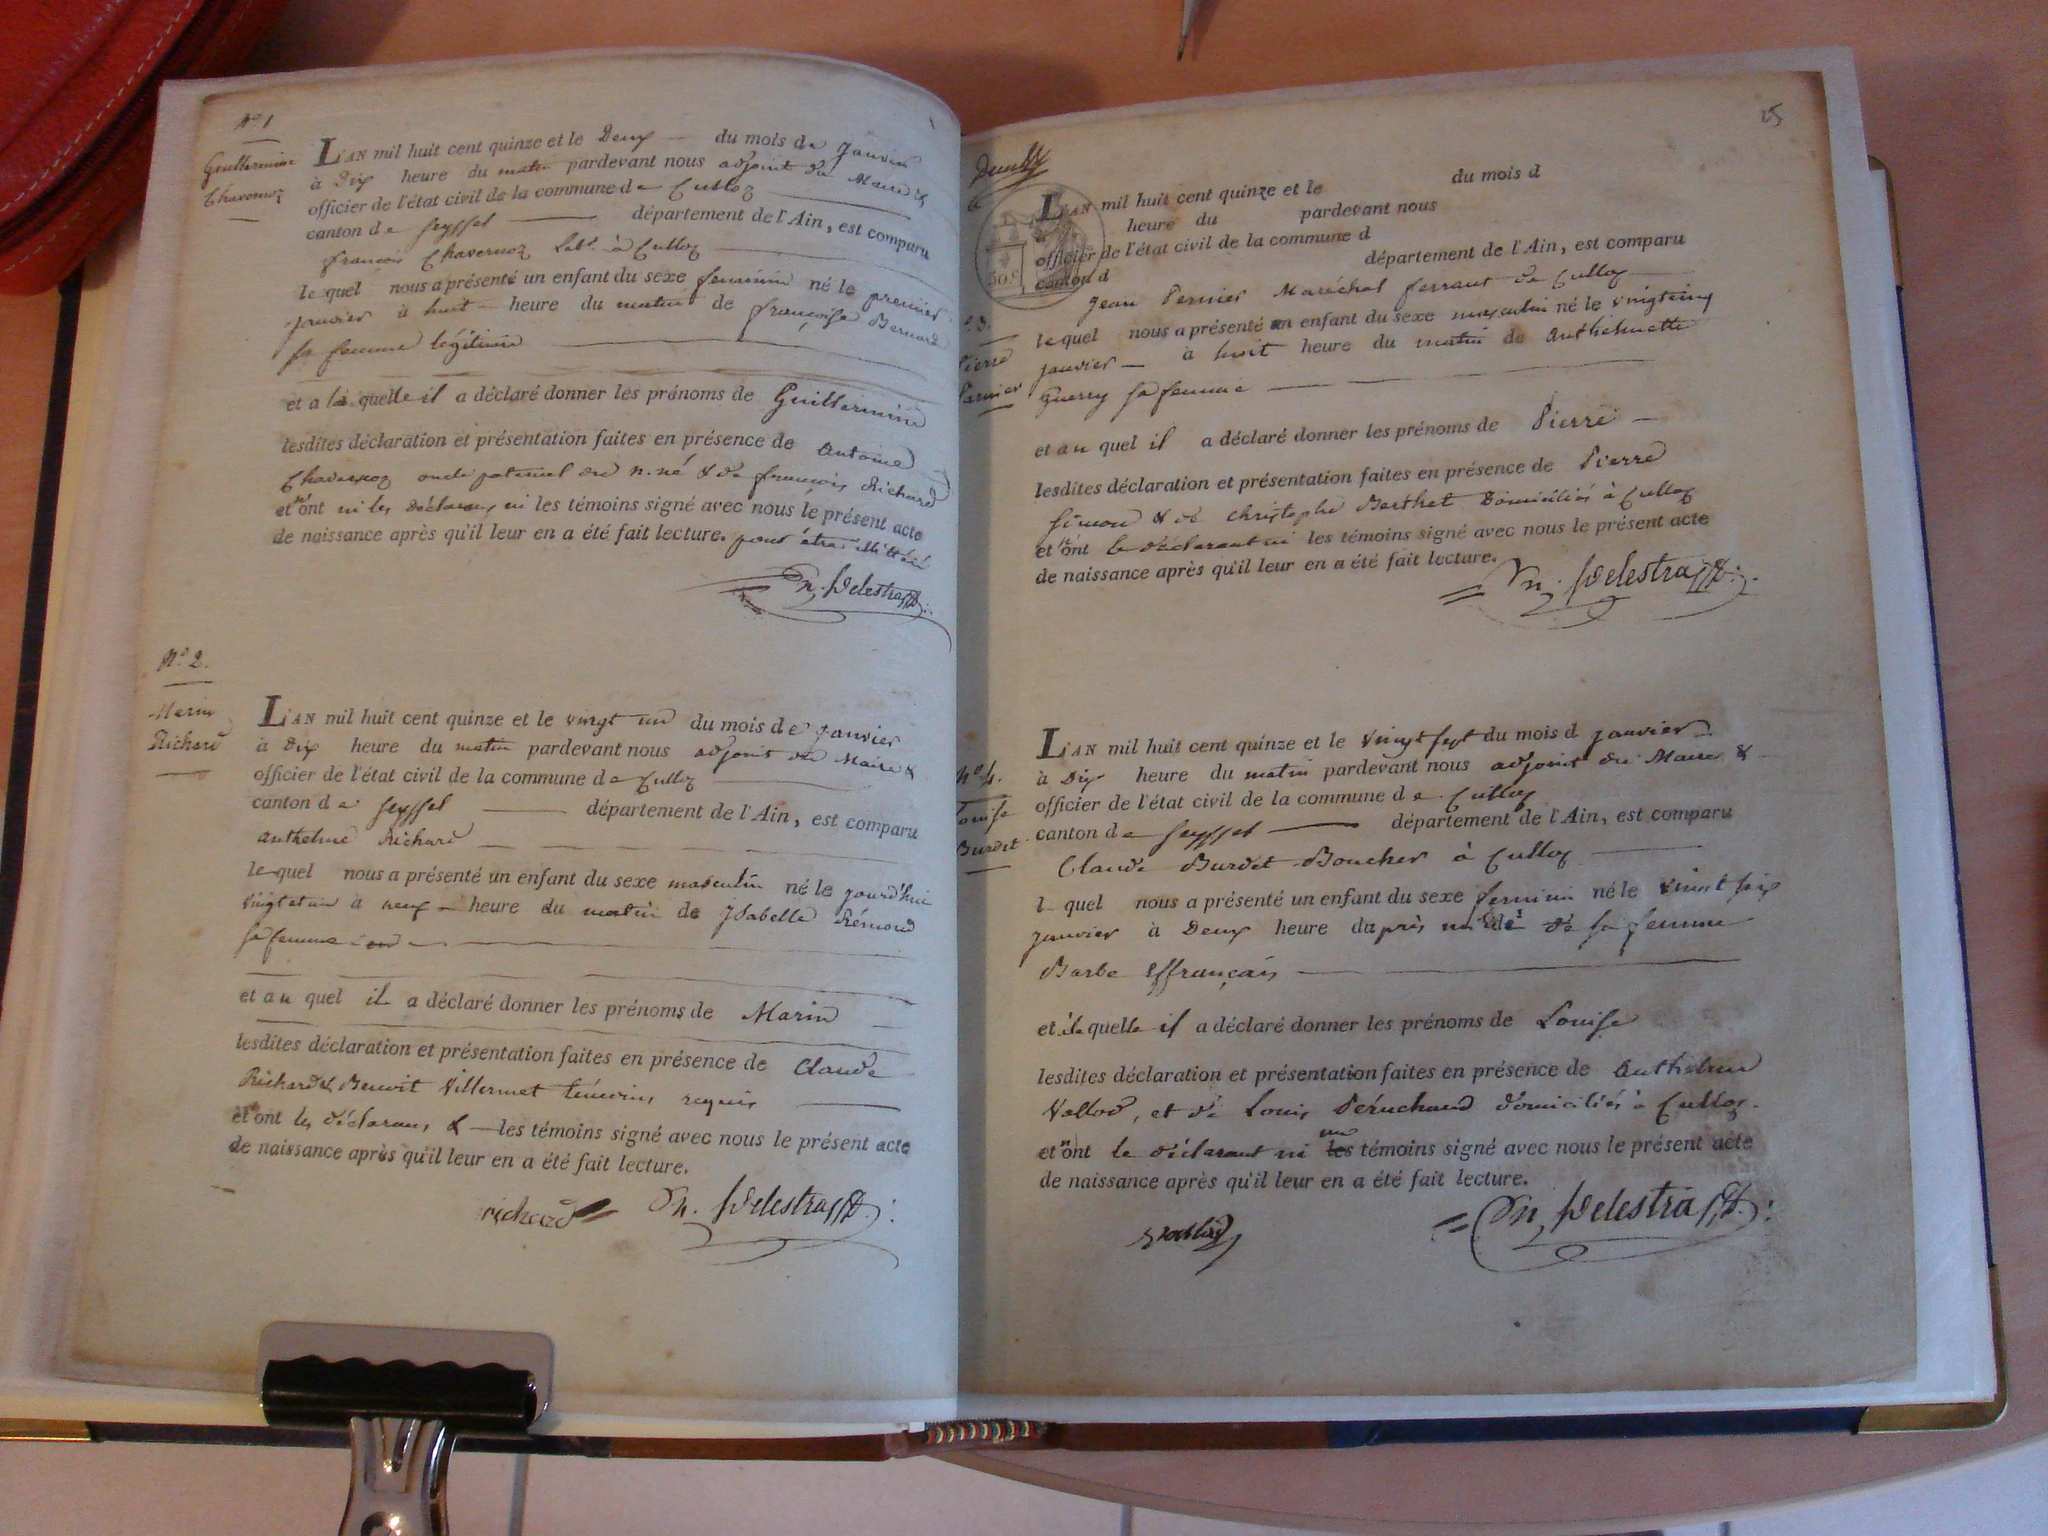 N° 1
Guillermine
Chavornoz
L'AN mil huit cent quinze et le Deux du mois de Janvier
à Dix heure du matin pardevant nous adjoint du Maire &
officier de l'état civil de la commune de Culloz
canton de Seyssel département de l'Ain, est comparu
françois Chavernoz Lab. à Culloz
lequel nous a présenté un enfant du sexe feminin né le premier
janvier à huit heure du matin de françoise Bernard
sa femme légitime
et a la quelle il a déclaré donner les prénoms de Guillermine
lesdites déclaration et présentation faites en présence de Antoine
Chavernoz oncle paternel du n. né & de françois Richard
et n'ont ni les déclarans ni les témoins signé avec nous le présent acte
de naissance après qu'il leur en a été fait lecture. pour être illitéré
Dn. Delestra
N° 2.
Marin
Richard
L'AN mil huit cent quinze et le vingt un du mois de janvier
à Dix heure du matin pardevant nous adjoint du Maire &
officier de l'état civil de la commune de Culloz
canton de Seyssel département de l'Ain, est comparu
anthelme Richard
lequel nous a présenté un enfant du sexe masculin né le jourd'hui
vingt et un à neuf heure du matin de Isabelle Rémond
sa femme
et au quel il a déclaré donner les prénoms de Marin
lesdites déclaration et présentation faites en présence de Claude
Richard & Benoit Villermet témoins requis
et ont les déclarans & les témoins signé avec nous le présent acte
de naissance après qu'il leur en a été fait lecture.
richard Dn. Delestra
15
50 c
L'AN mil huit cent quinze et le du mois d
à heure du pardevant nous
officier de l'état civil de la commune d
canton d département de l'Ain, est comparu
Jean Pernier Maréchal ferrant de Culloz
3.
Pierre
Parnier
lequel nous a présenté un enfant du sexe masculin né le vingtcinq
janvier à huit heure du matin de Anthelmette
Guerry sa femme
et au quel il a déclaré donner les prénoms de Pierre
lesdites déclaration et présentation faites en présence de Pierre
Simon & de Christophe Berthet Domiciliés à Culloz
et n'ont le déclarant ni les témoins signé avec nous le présent acte
de naissance après qu'il leur en a été fait lecture.
Dn. Delestra
N° 4.
Louise
Burdet
L'AN mil huit cent quinze et le vingt sept du mois d janvier
à Dix heure du matin pardevant nous adjoint du Maire &
officier de l'état civil de la commune de Culloz
canton de Seyssel département de l'Ain, est comparu
Claude Burdet Boucher à Culloz
l quel nous a présenté un enfant du sexe feminin né le vingt six
janvier à Deux heure daprès midi de sa femme
Barbe Effrançais
et à la quelle il a déclaré donner les prénoms de Louise
lesdites déclaration et présentation faites en présence de Anthelme
Vallod, et de Louis Péruchaud domiciliés à Culloz.
et n'ont le déclarant ni un les témoins signé avec nous le présent acte
de naissance après qu'il leur en a été fait lecture.
Vallod Dn. Delestra